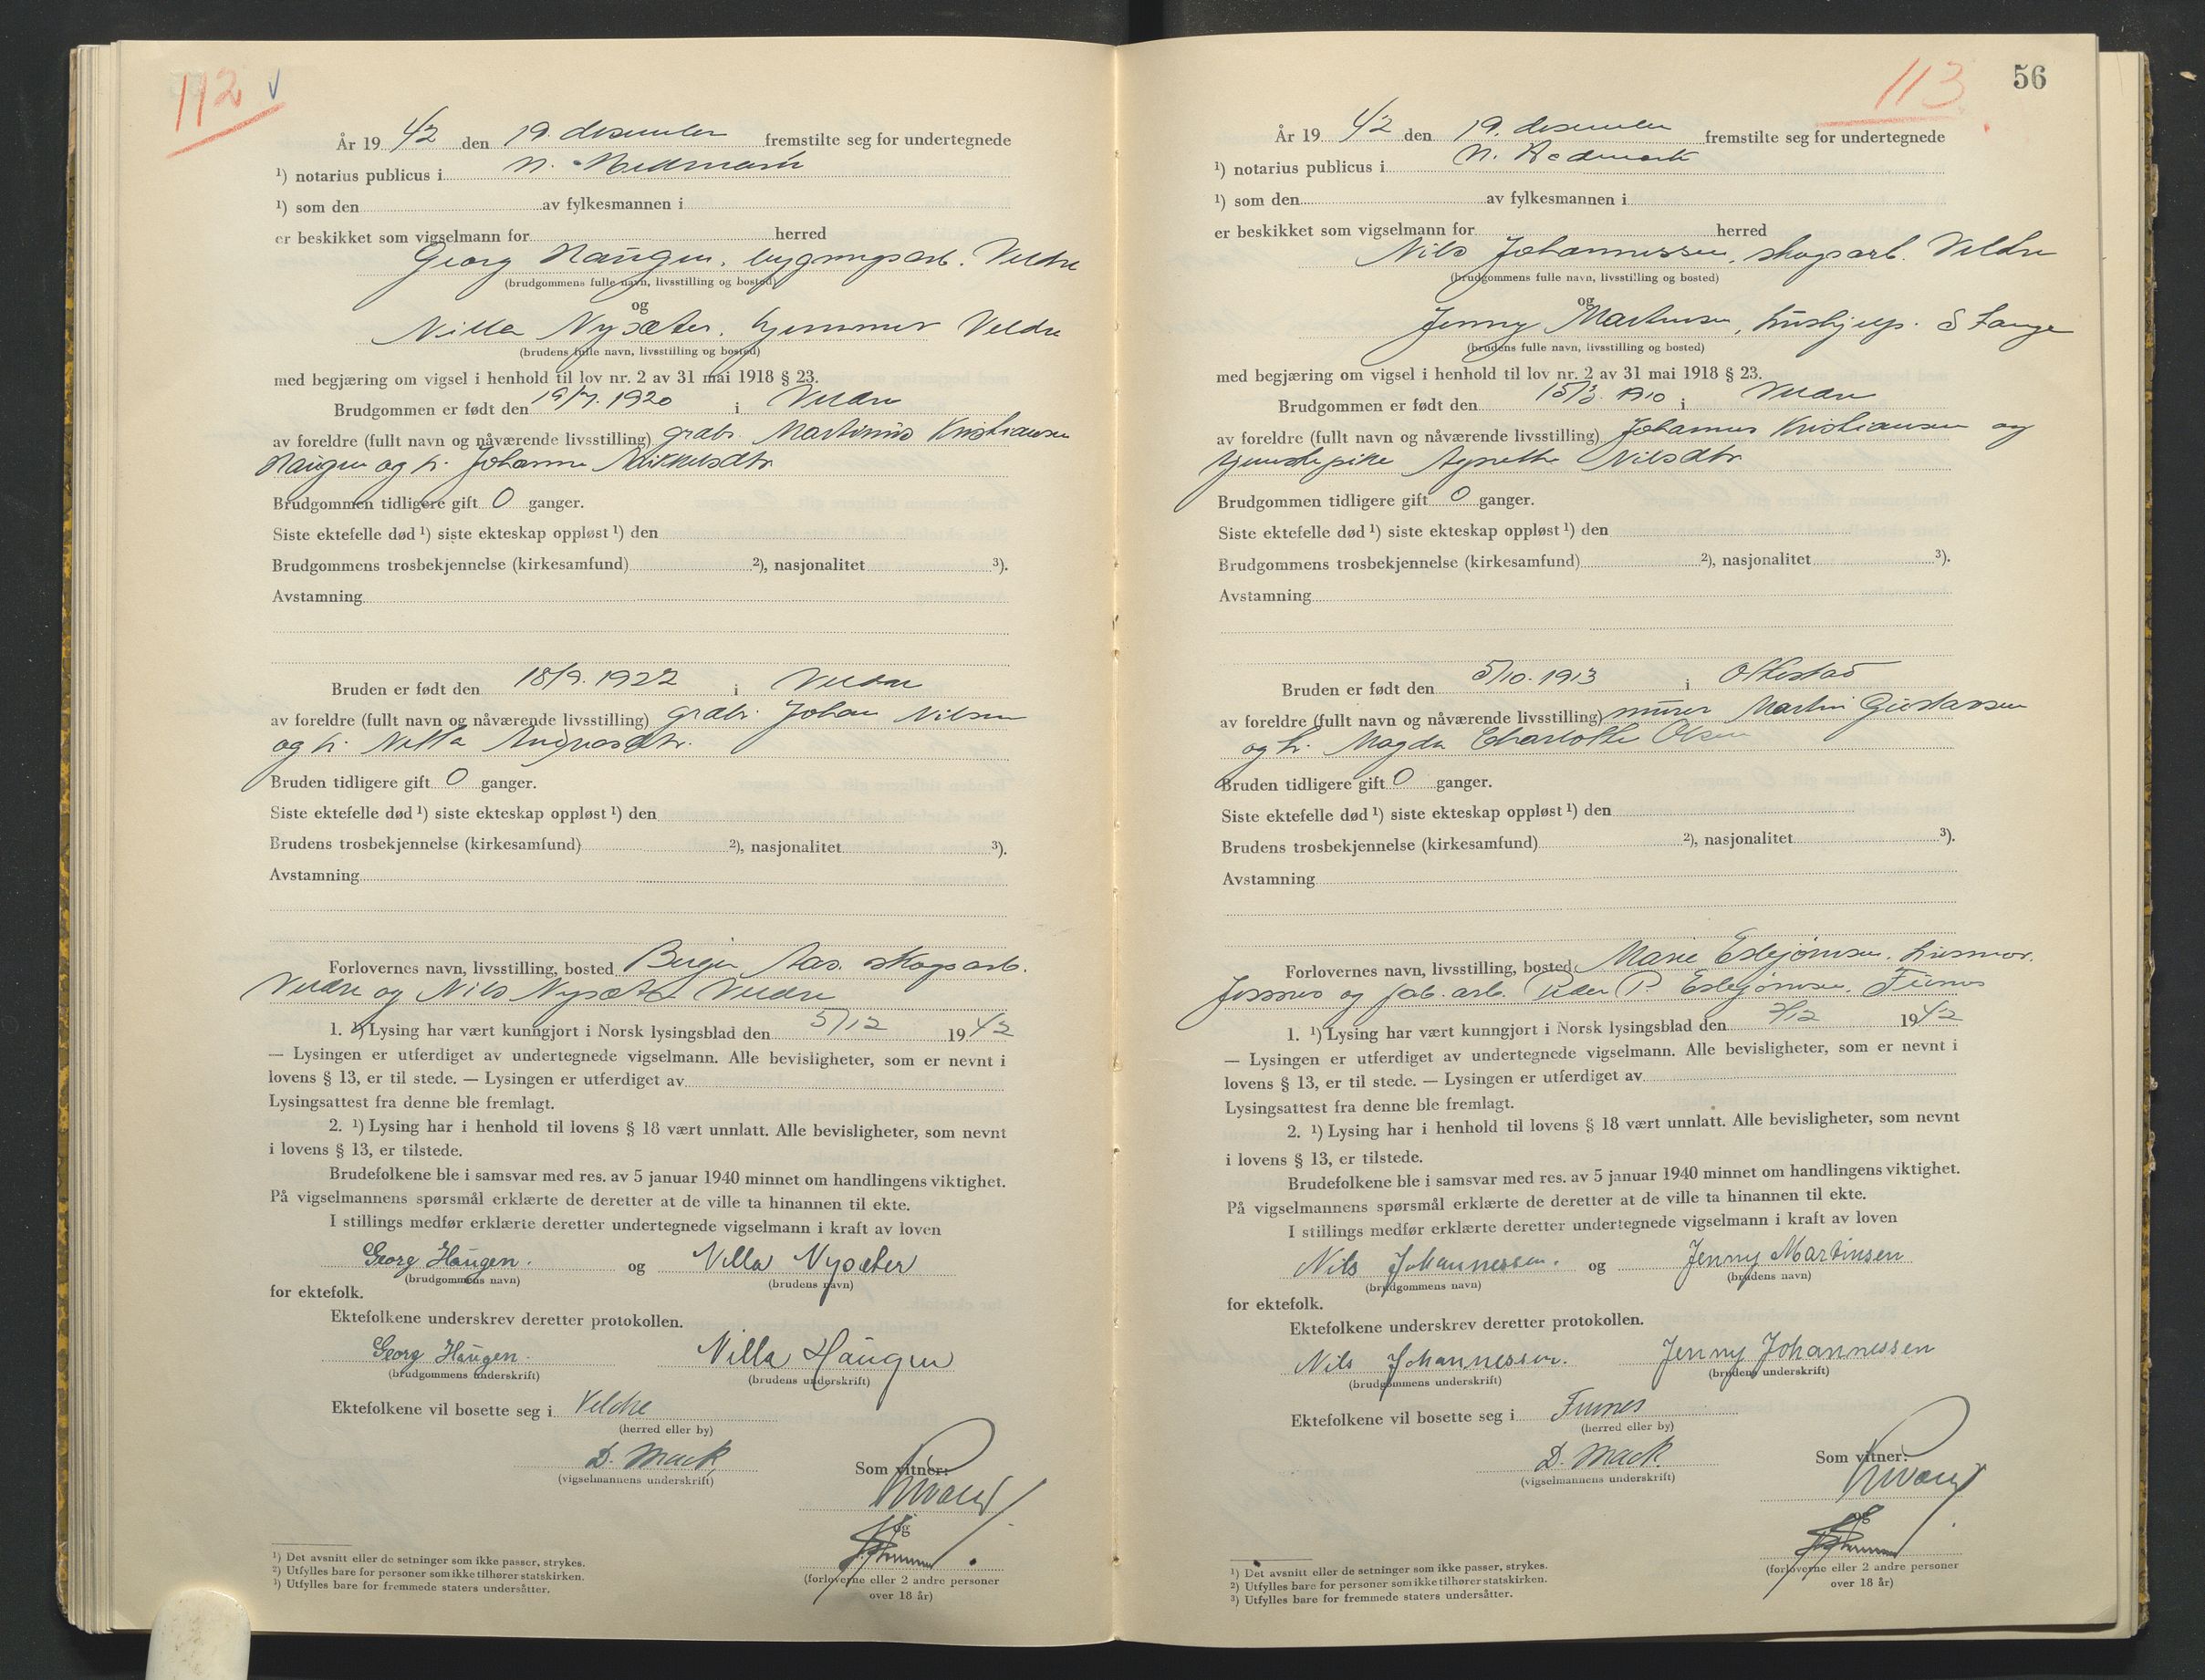 112
År 1942 den 19. desember fremstilte seg for undertegnede
¹) notarius publicus i N. Hedmark
¹) som den av fylkesmannen i
er beskikket som vigselmann for herred
Georg Haugen, bygningsarb. Veldre
(brudgommens fulle navn, livsstilling og bosted)
og
Nilla Nysæter, hjemmev. Veldre
(brudens fulle navn, livsstilling og bosted)
med begjæring om vigsel i henhold til lov nr. 2 av 31 mai 1918 § 23.
Brudgommen er født den 19/7. 1920 i Veldre
av foreldre (fullt navn og nåværende livsstilling) grdbr. Martinius Kristiansen
Haugen og h. Johanne Mikkelsdtr
Brudgommen tidligere gift 0 ganger.
Siste ektefelle død ¹) siste ekteskap oppløst ¹) den
Brudgommens trosbekjennelse (kirkesamfund) ²), nasjonalitet ³).
Avstamning
Bruden er født den 18/9. 1922 i Veldre
av foreldre (fullt navn og nåværende livsstilling) grdbr. Johan Nilsen
og h. Nilla
Bruden tidligere gift 0 ganger.
Siste ektefelle død ¹) siste ekteskap oppløst ¹) den
Brudens trosbekjennelse (kirkesamfund) ²), nasjonalitet ³).
Avstamning
Forlovernes navn, livsstilling, bosted Birger Aas. skogsarb.
Veldre og Nils Nysæter Veldre
1. ¹) Lysing har vært kunngjort i Norsk lysingsblad den 5/12 1942
— Lysingen er utferdiget av undertegnede vigselmann. Alle bevisligheter, som er nevnt i
lovens § 13, er til stede. — Lysingen er utferdiget av
Lysingsattest fra denne ble fremlagt.
2. ¹) Lysing har i henhold til lovens § 18 vært unnlatt. Alle bevisligheter, som nevnt
i lovens § 13, er tilstede.
Brudefolkene ble i samsvar med res. av 5 januar 1940 minnet om handlingens viktighet.
På vigselmannens spørsmål erklærte de deretter at de ville ta hinannen til ekte.
I stillings medfør erklærte deretter undertegnede vigselmann i kraft av loven
Georg Haugen. og Nilla Nysæter
(brudgommens navn) (brudens navn)
for ektefolk.
Ektefolkene underskrev deretter protokollen.
Georg Haugen. Nilla Haugen
(brudgommens underskrift) (brudens underskrift)
Ektefolkene vil bosette seg i Veldre
(herred eller by)
D. Mack,
(vigselmannens underskrift)
Som vitner:
og
(forloverne eller 2 andre personer
over 18 år)
¹) Det avsnitt eller de setninger som ikke passer, strykes.
²) Utfylles bare for personer som ikke tilhører statskirken.
³) Utfylles bare for fremmede staters undersåtter.
113 56
År 1942 den 19. desember fremstilte seg for undertegnede
¹) notarius publicus i N. Hedmark
¹) som den av fylkesmannen i
er beskikket som vigselmann for herred
Nils Johannessen, skogsarb. Veldre
(brudgommens fulle navn, livsstilling og bosted)
og
Jenny Martinsen, hushjelp. S Stange
(brudens fulle navn, livsstilling og bosted)
med begjæring om vigsel i henhold til lov nr. 2 av 31 mai 1918 § 23.
Brudgommen er født den 15/3. 1910 i Veldre
av foreldre (fullt navn og nåværende livsstilling) Johannes Kristiansen og
tjenestepike Agnethe Nilsdtr
Brudgommen tidligere gift 0 ganger.
Siste ektefelle død ¹) siste ekteskap oppløst ¹) den
Brudgommens trosbekjennelse (kirkesamfund) ²), nasjonalitet ³).
Avstamning
Bruden er født den 5/10. 1913 i Ottestad
av foreldre (fullt navn og nåværende livsstilling) murer Martin Gustavsen
og h. Magda Charlotte Olsen
Bruden tidligere gift 0 ganger.
Siste ektefelle død ¹) siste ekteskap oppløst ¹) den
Brudens trosbekjennelse (kirkesamfund) ²), nasjonalitet ³).
Avstamning
Forlovernes navn, livsstilling, bosted Marie Esbjørnsen. husmor.
og fab. arb. Peder P. Esbjørnsen. Furnes
1. ¹) Lysing har vært kunngjort i Norsk lysingsblad den 2/12 1942
— Lysingen er utferdiget av undertegnede vigselmann. Alle bevisligheter, som er nevnt i
lovens § 13, er til stede. — Lysingen er utferdiget av
Lysingsattest fra denne ble fremlagt.
2. ¹) Lysing har i henhold til lovens § 18 vært unnlatt. Alle bevisligheter, som nevnt
i lovens § 13, er tilstede.
Brudefolkene ble i samsvar med res. av 5 januar 1940 minnet om handlingens viktighet.
På vigselmannens spørsmål erklærte de deretter at de ville ta hinannen til ekte.
I stillings medfør erklærte deretter undertegnede vigselmann i kraft av loven
Nils Johannessen. og Jenny Martinsen
(brudgommens navn) (brudens navn)
for ektefolk.
Ektefolkene underskrev deretter protokollen.
Nils Johannessen. Jenny Johannessen
(brudgommens underskrift) (brudens underskrift)
Ektefolkene vil bosette seg i Furnes
(herred eller by)
D. Mack.
(vigselmannens underskrift)
Som vitner:
og
(forloverne eller 2 andre personer
over 18 år)
¹) Det avsnitt eller de setninger som ikke passer, strykes.
²) Utfylles bare for personer som ikke tilhører statskirken.
³) Utfylles bare for fremmede staters undersåtter.